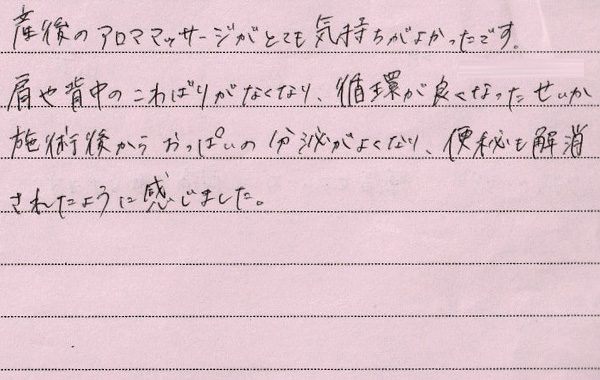 産後のアロママッサージがとても気持ちがよかったです。
肩や背中のこわばりがなくなり、循環が良くなったせいか
施術後からおっぱいの分泌がよくなり、便秘も解消
されたように感じました。